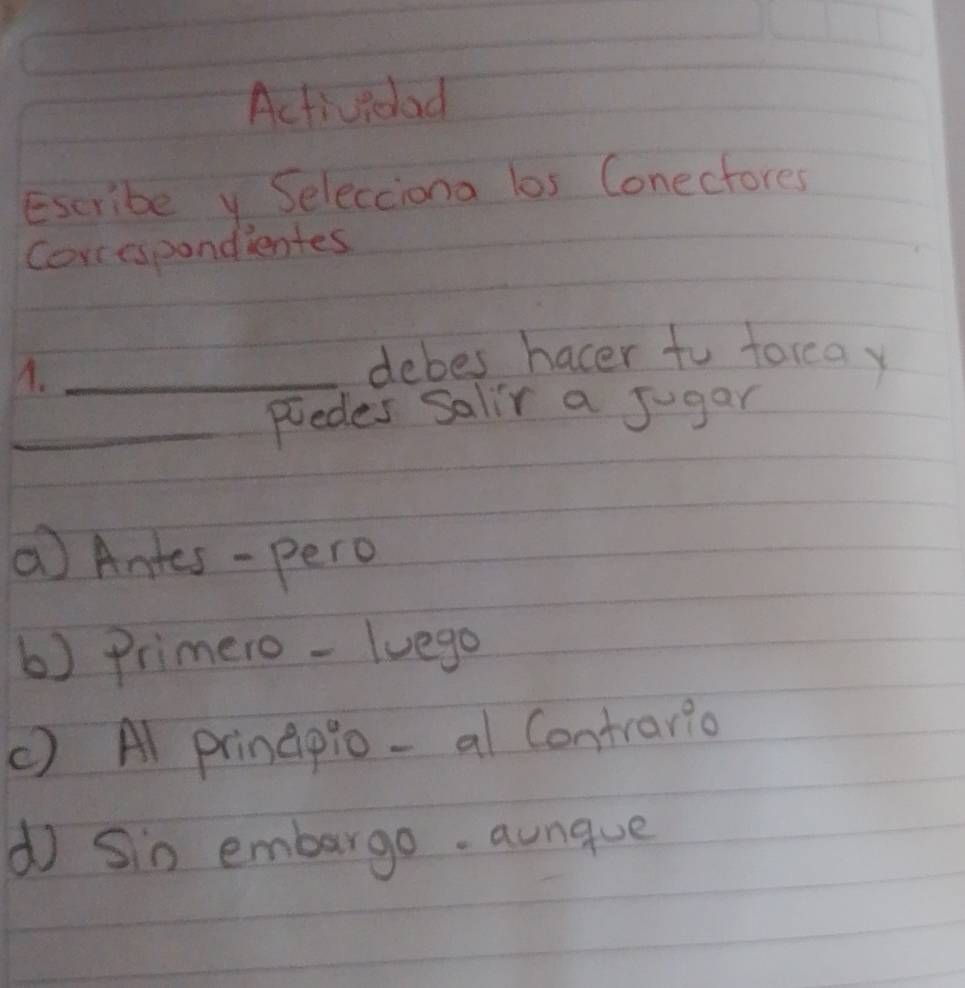 Actividad
Escribe y Selecciona los Conectores
Correspondientes
1. __________ debes hacer tu tarea y
__________ puedes Salir a Jugar
a) Antes - pero
b) Primero - luego
c) Al principio - al Contrario
d) Sin embargo - aunque